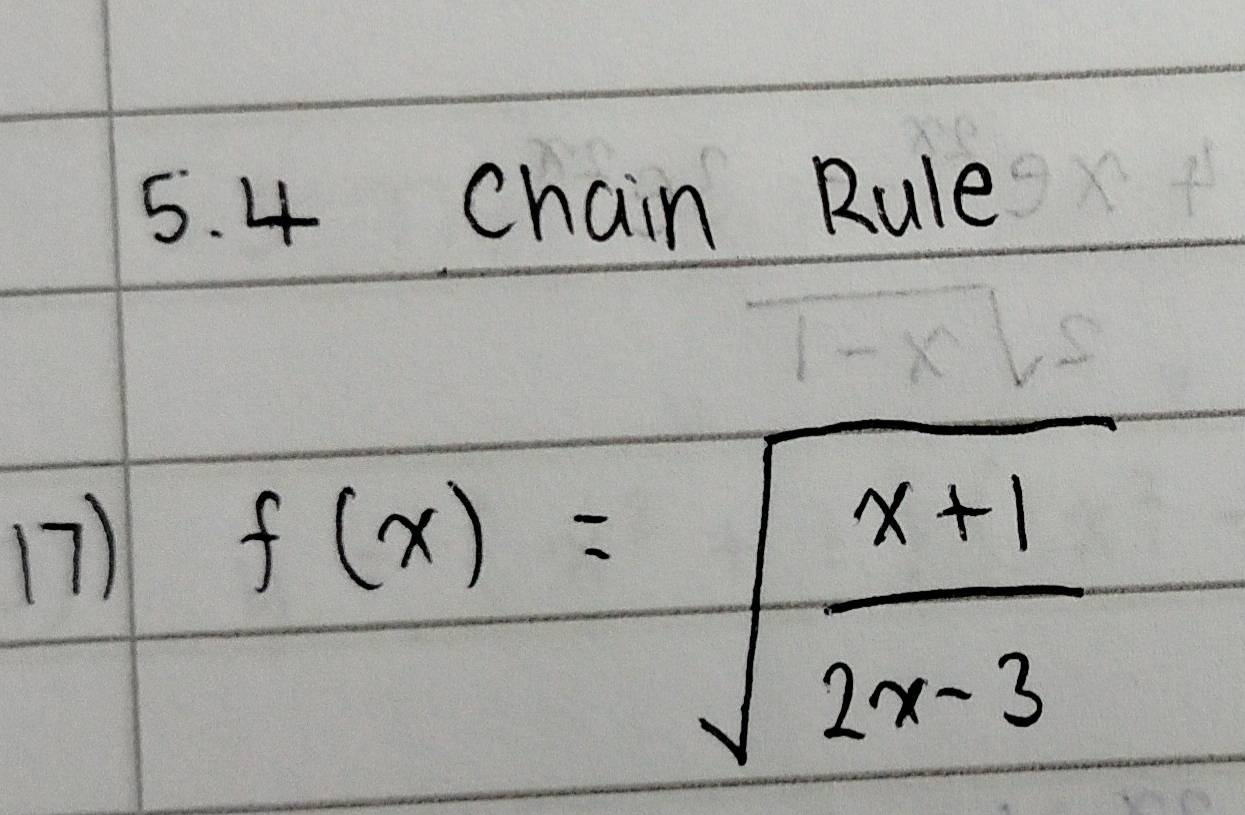 5.4 Chain Rule
17) f(x) = √((x+1)/(2x-3))